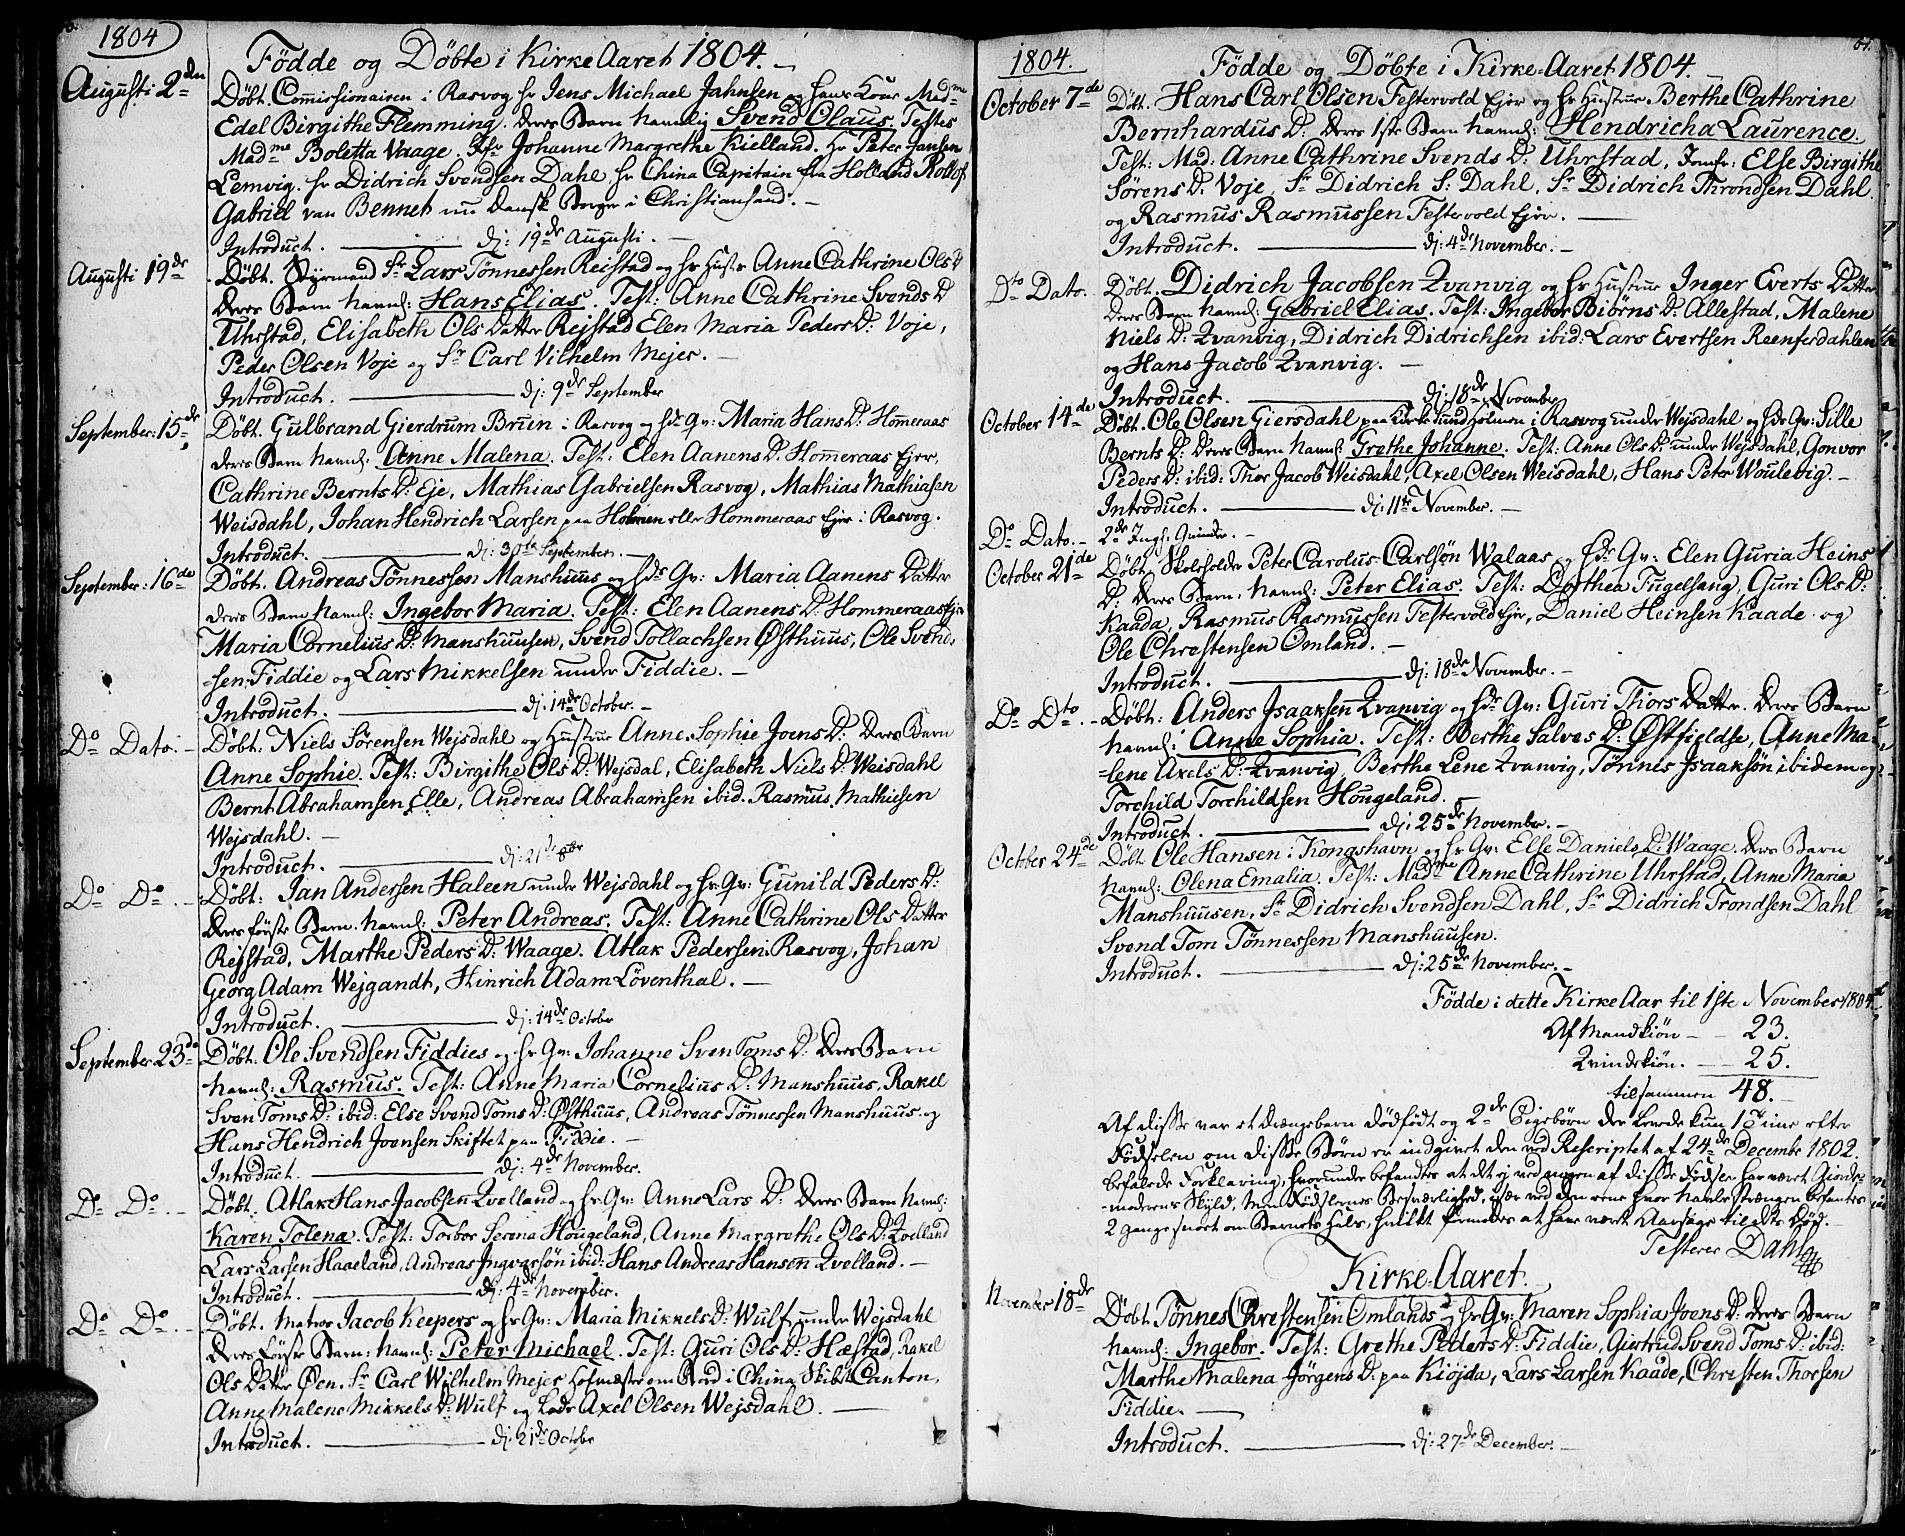 1804
Födde og Döbte i Kirke Aaret 1804.
Augusti 2den
Döbt. Commissionairen i Rasvog Hr Jens Michael Jahnsen og hans Kone Madme
Edel Birgithe Flemming. deres Barn navnlig Svend Claus. Testes
Madme Boletta Vaage. Jfr Johanne Margrethe Kielland. Hr Peter Jansen
Lemvig. Hr Didrich Svendsen Dahl, Hr China Capitain fra Holland Rollof
Gabriel van Bennet nu Dansk Borger i Christiansand.
Introduct. dj: 19de Augusti.
Augusti 19de
Döbt. Styrmand Sr Lars Tönnessen Reistad og hs Hustr Anne Cathrine Ols D
deres Barn navnl: Hans Elias. Test: Anne Cathrine Svends D
Uhrstad, Elisabeth Ols Datter Rejstad Elen Maria Peders D: Voje,
Peder Olsen Voje og Sr Carl Vilhelm Mejer.
Introduct. dj: 9de September
September: 15de
Döbt. Gulbrand Gierdrum Brun i Rasvog og hds Qv: Maria Hans D: Homeraas
deres Barn navnl: Anne Malena. Test: Elen Aanens D: Homeraas Ejer,
Cathrine Bernts D: Eje, Mathias Gabrielsen Rasvog, Mathias Mathiasen
Weisdahl, Johan Hendrich Larsen paa Holmen eller Hommeraas Ejer i Rasvog.
Introduct. dj: 30te September.
September: 16de
Döbt. Andreas Tönnessen Manshuus og hds Qv: Maria Aanens Datter
deres Barn navnl: Ingebor Maria. Test: Elen Aanens D: Hommeraas Ejer
Maria Cornelius D: Manshuusen, Svend Tollachsen Østhuus, Ole Svend-
-sen Fiddie og Lars Mikkelsen under Fiddie.
Introduct. dj: 14de October.
Do Dato.
Döbt: Niels Sörensen Wejsdahl og Hustrue Anne Sophie Joens D: deres Barn
Anne Sophie. Test: Birgithe Ols D: Wejsdal, Elisabeth Niels D: Weisdahl
Bernt Abrahamsen Elle, Andreas Abrahamsen ibid. Rasmus Mathiesen
Wejsdahl.
Introduct. dj: 21de 8br
Do Do.
Döbt: Jan Andersen Haleen under Wejsdahl og hs Qv: Gunild Peders D:
deres förste Barn. navnl: Peter Andreas. Test: Anne Cathrine Ols Datter
Rejstad, Marthe Peders D: Waage. Atlak Pedersen Rasvog, Johan
Georg Adam Wejgandt, Hinrich Adam Löventhal.
Introduct. dj: 14de October
September 23de
Döbt. Ole Svendsen Fiddies og hs Qv: Johanne Sven Toms D: deres Barn
navnl: Rasmus. Test: Anne Maria Cornelius D: Manshuus, Rakel
Sven Toms D: ibid: Else Svend Toms D: Østhuus, Andreas Tönnessen Manshuus og
Hans Hendrich Joensen Skiftet paa Fiddie.
Introduct. dj: 4de November.
Do Do.
Döbt. Atlak Hans Jacobsen Qvelland og hs Qv: Anne Lars D: deres Barn navnl:
Karen Tolena. Test: Torbor Serina Hougeland, Anne Margrethe Ols D: Qvelland
Lars Larsen Haaeland, Andreas Ingvarsön ibid: Hans Andreas Hansen Qvelland.
Introduct. dj: 4de November.
Do Do.
Döbt. Matros Jacob Keepers og hs Qv: Maria Mikkels D: Wulf under Wejsdahl
deres förste Barn: navnl: Peter Michael. Test: Guri Ols D: Hæstad, Rakel
Ols Datter Øen. Sr Carl Wilhelm Mejer Hofmester om Bord i China Skibet Canton,
Anne Malene Mikkels D: Wulf og Lods Axel Olsen Wejsdahl.
Introduct. dj: 21de October
1804.
Födde og Döbte i Kirke-Aaret 1804.
October 7de
Döbt. Hans Carl Olsen Festervold Ejer og hs Hustrue Berthe Cathrine
Bernhardus D: deres 1ste Barn navnl: Hendricha Laurence.
Test: Mad: Anne Cathrine Svends D: Uhrstad, Jomfr: Else Birgithe
Sörens D: Voje, Sr Didrich S: Dahl, Sr Didrich Throndsen Dahl.
og Rasmus Rasmussen Festervold Ejer.
Introduct. dj: 4de November.
Dto Dato.
Döbt. Didrich Jacobsen Qvanvig og hs Hustrue Inger Everts Datter
deres Barn navnl: Gabriel Elias. Test: Ingebor Biörns D: Allestad, Malene
Niels D: Qvanvig, Didrich Didrichsen ibid: Lars Evertsen Reenferdahlen
og Hans Jacob Qvanvig.
Introduct. dj: 18de November
October 14de
Döbt. Ole Olsen Giersdahl paa Kirkesundholmen i Rasvog under Wejsdahl og hds Qv: Sille
Bernts D: deres Barn navnl: Grethe Johanne. Test: Anne Ols D: under Wejsdahl, Gonvor
Peders D: ibid: Thor Jacob Weisdahl, Axel Olsen Weisdahl, Hans Peter Woulevig.
Introduct. dj: 11te November.
Do Dato.
2de Ingh: Qvinder.
October 21de
Döbt. Skoleholder Peter Carolus Carlsön Walaas og hds Qv: Elen Guria Heins
D: deres Barn. navnl: Peter Elias. Test: Dorthea Fugelsang, Guri Ols D:
Kaada, Rasmus Rasmussen Festervold Ejer, Daniel Heinsen Kaade og
Ole Chrestensen Omland.
Introduct. dj: 18de November.
Do Dto.
Döbt: Anders Isaaksen Qvanvig og hds Qv: Guri Thors Datter. deres Barn
navnl: Anne Sophia. Test: Berthe Salves D: Østfieldse, Anne Ma-
-lene Axels D: Qvanvig, Berthe Lene Qvanvig, Tönnes Isaaksön ibidem og
Torchild Torchildsen Hougeland.
Introduct. dj: 25de November.
October 24de
Döbt Ole Hansen i Kongshavn og hs Qv: Else Daniels D: Waage. deres Barn
navnl: Olena Emalia. Test: Madme Anne Cathrine Uhrstad, Anne Maria
Manshuusen, Sr Didrich Svendsen Dahl, Sr Didrich Trondsen Dahl
Svend Tom Tönnessen Manshuusen.
Introduct. dj: 25de November.
Födde i dette Kirke Aar til 1ste November 1804
Af Mandkiön 23.
Qvindekiön. 25.
tilsammen 48.
Af disse var et drengebarn dödfödt og 2de Pigebörn der levede kun 1 Time efter
Födselen om disse Börn er indgivet den ved Rescriptet af 24de Decembr 1802.
befalede Forklaring, hvorunder befandtes at det ej ved nogen af disse Födsler har været Giorde-
-moderens Skyld, men Födslernes Besværlighed, især ved den eene hvor Navlestrængen befantes
2 gange snoet om Barnets Hals, hvilket formodes at have været Aarsage til dets Död.
Testerer Dahl
Kirke-Aaret.
November 18de
Döbt Tönnes Chrestensen Omlands og hs Qv: Maren Sophia Joens D: deres Barn
navnl: Ingebor. Test: Grethe Peders D: Fiddie, Giertrud Svend Toms D: ibid:
Marthe Malena Jörgens D: paa Kiöjda, Lars Larsen Kaade, Christen Thorsen
Fiddie.
Introduct. dj: 27de December.